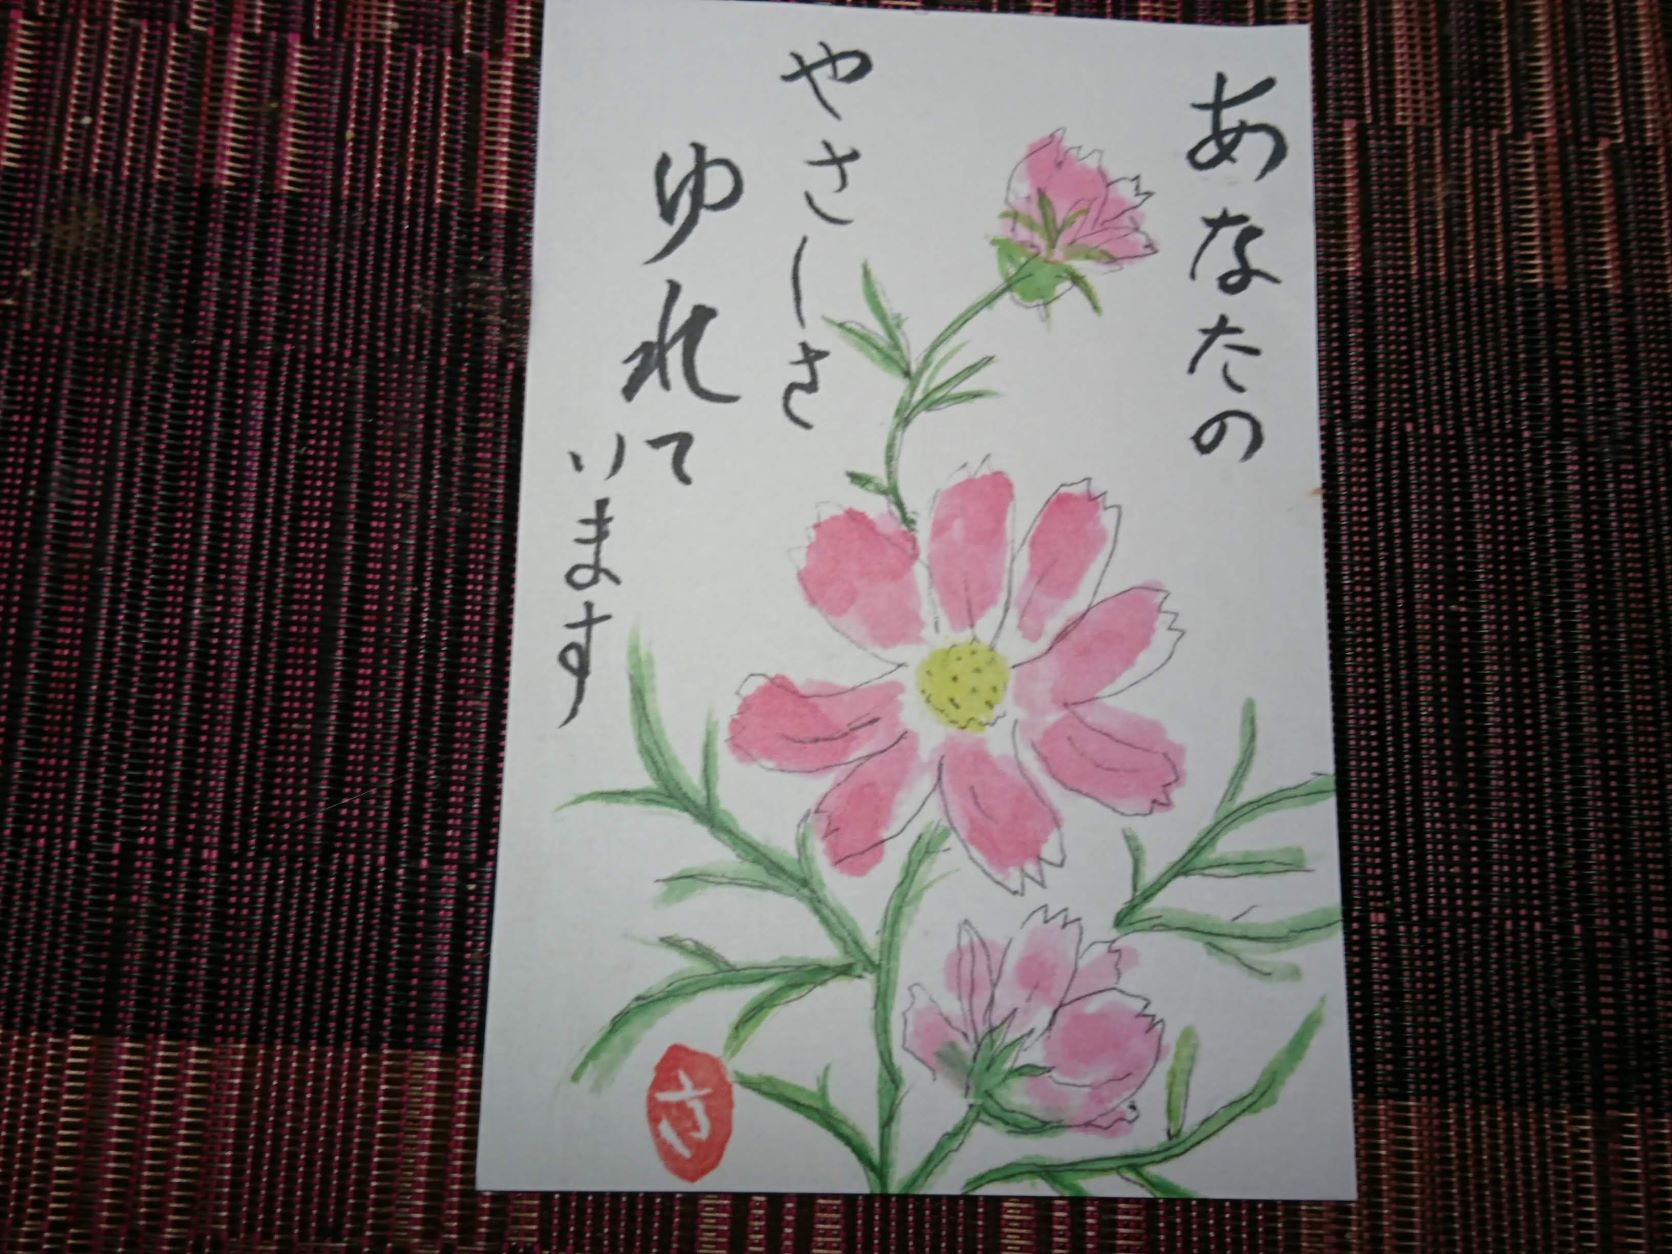 あなたの
やさしさ
ゆれて
います